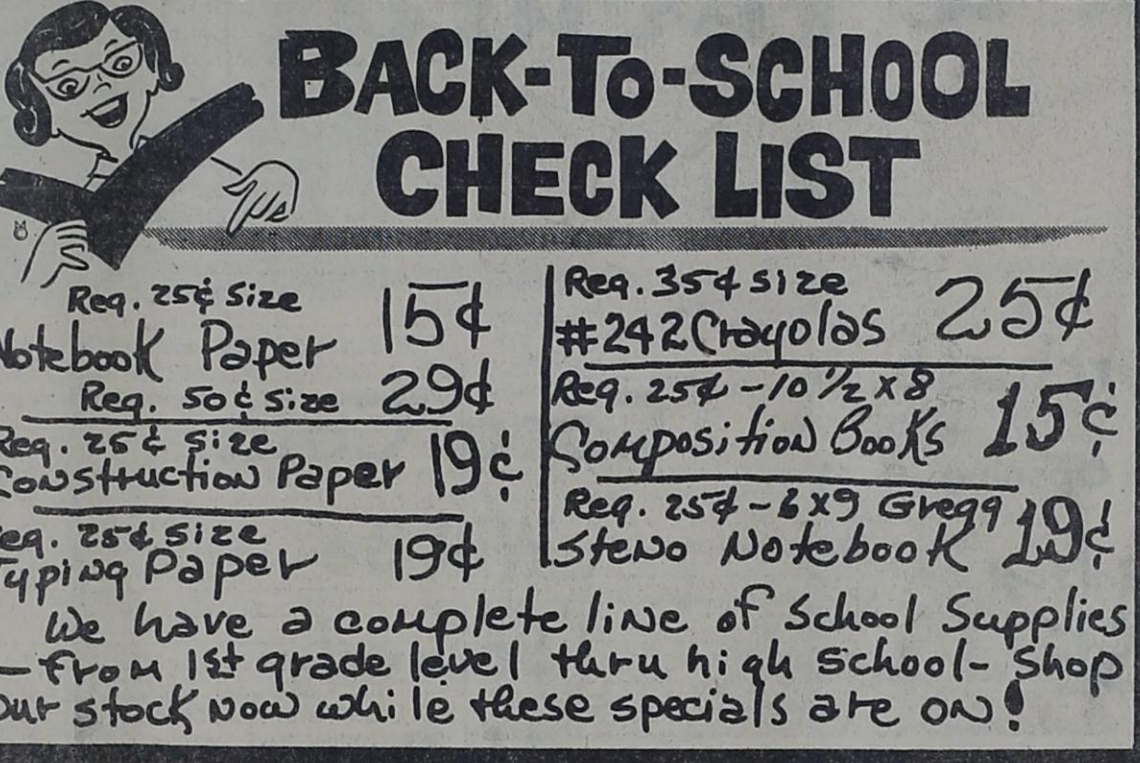 BACK-TO-SCHOOL
CHECK LIST
Reg. 25¢ size
Notebook Paper 15¢
Reg. 50¢ size 29¢
Reg. 25¢ size
Construction Paper 19¢
Reg. 25¢ size
Typing Paper 19¢
Reg. 35¢ size
#242 Crayolas 25¢
Reg. 25¢ - 10 1/2 x 8
Composition Books 15¢
Reg. 25¢ - 6 x 9 Gregg
Steno Notebook 19¢
We have a complete line of School Supplies
- from 1st grade level thru high school - Shop
our stock now while these specials are on!